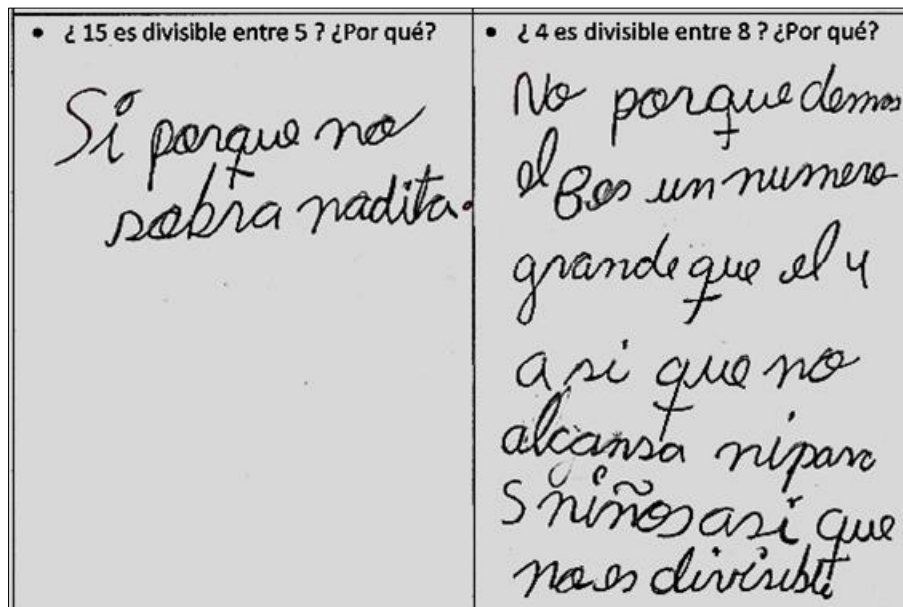 • ¿ 15 es divisible entre 5 ? ¿Por qué?
Si porque no
sobra nadita.
• ¿ 4 es divisible entre 8 ? ¿Por qué?
No porque demos
el 8 es un numero
grande que el 4
a si que no
alcansa ni para
5 niños asi que
no es divisible